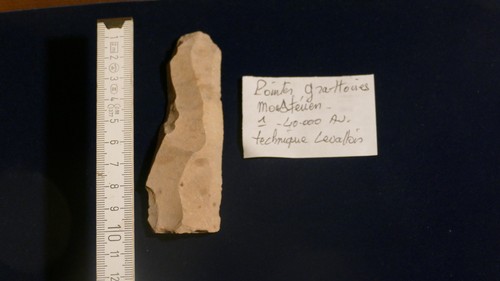 Pointes grattoires
Moustérien.
1 -40.000 Av.
technique Levallois
1
2
3
4
5
6
7
8
9
10
11
12